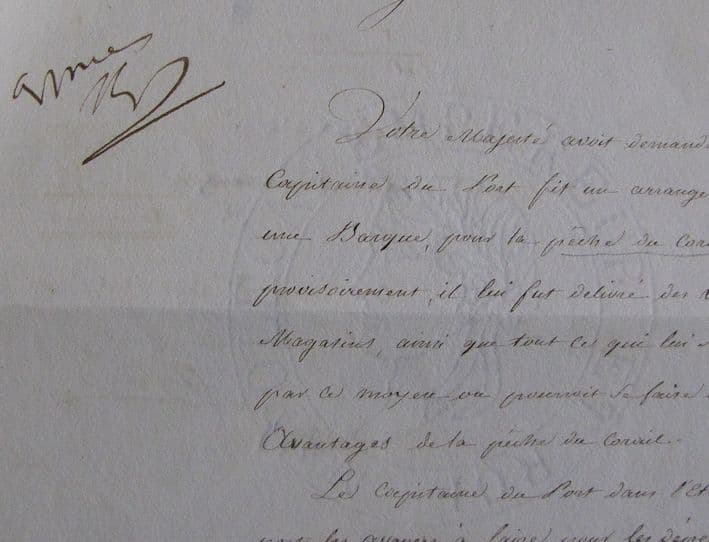 Votre Majesté avoit demand
Capitaine du Port fit un arrange
une Barque, pour la pêche du Cor
provisoirement, il lui fut délivré des
Magasins, ainsi que tout ce qui lui
par ce moyen on pourroit se faire
Avantages de la pêche du Corail.
Le Capitaine du Port dans l'Et
les avances à faire pour les dépe